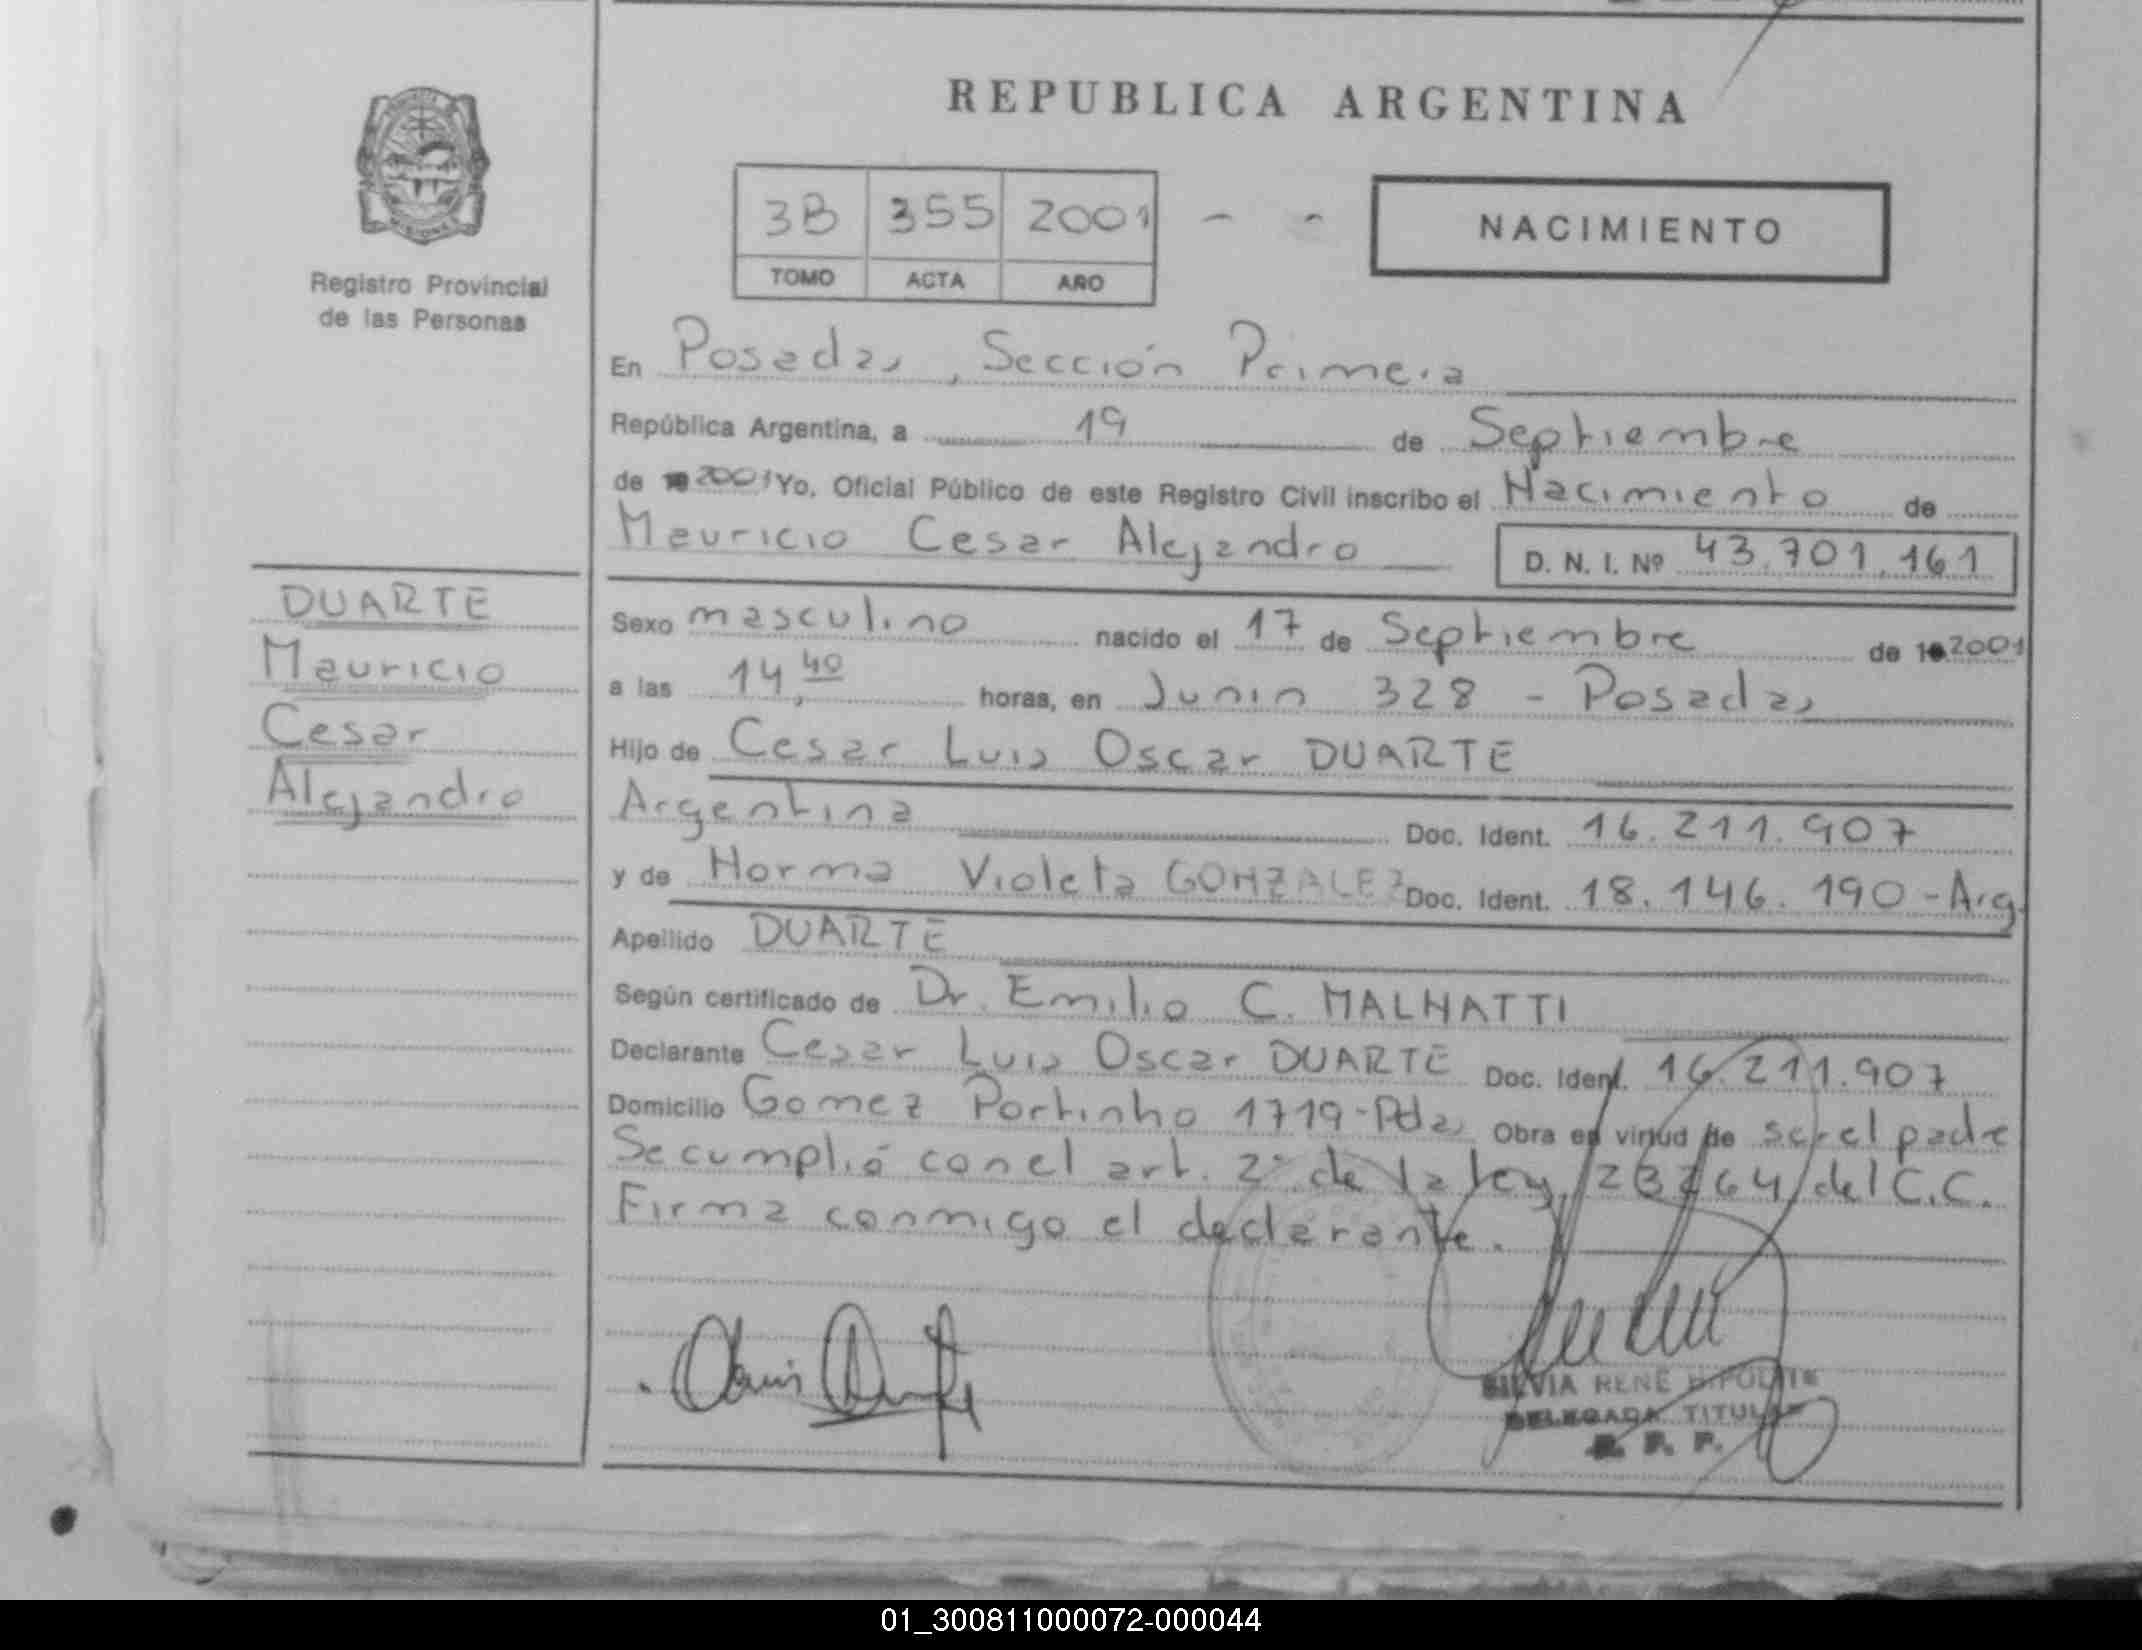 REPUBLICA ARGENTINA
3B 355 2001 - -
TOMO ACTA AÑO
NACIMIENTO
Registro Provincial
de las Personas
En Posadas, Sección Primera
República Argentina, a 19 de Septiembre
de 2001 Yo, Oficial Público de este Registro Civil inscribo el Nacimiento de
Mauricio Cesar Alejandro D. N. I. Nº 43.701.161
DUARTE
Mauricio
Cesar
Alejandro
Sexo masculino nacido el 17 de Septiembre de 2001
a las 14,40 horas, en Junin 328 - Posadas
Hijo de Cesar Luis Oscar DUARTE
Argentina Doc. Ident. 16.211.907
y de Norma Violeta GONZALEZ Doc. Ident. 18.146.190 - Arg.
Apellido DUARTE
Según certificado de Dr. Emilio C. MALNATTI
Declarante Cesar Luis Oscar DUARTE Doc. Ident. 16.211.907
Domicilio Gomez Portinho 1719-Pdas Obra en virtud de ser el padre
Se cumplió con el art. 2º de la ley 23264 del C.C.
Firma conmigo el declarante.
SILVIA RENE HIPOLITE
DELEGADA TITULAR
R. P. P.
01_300811000072-000044